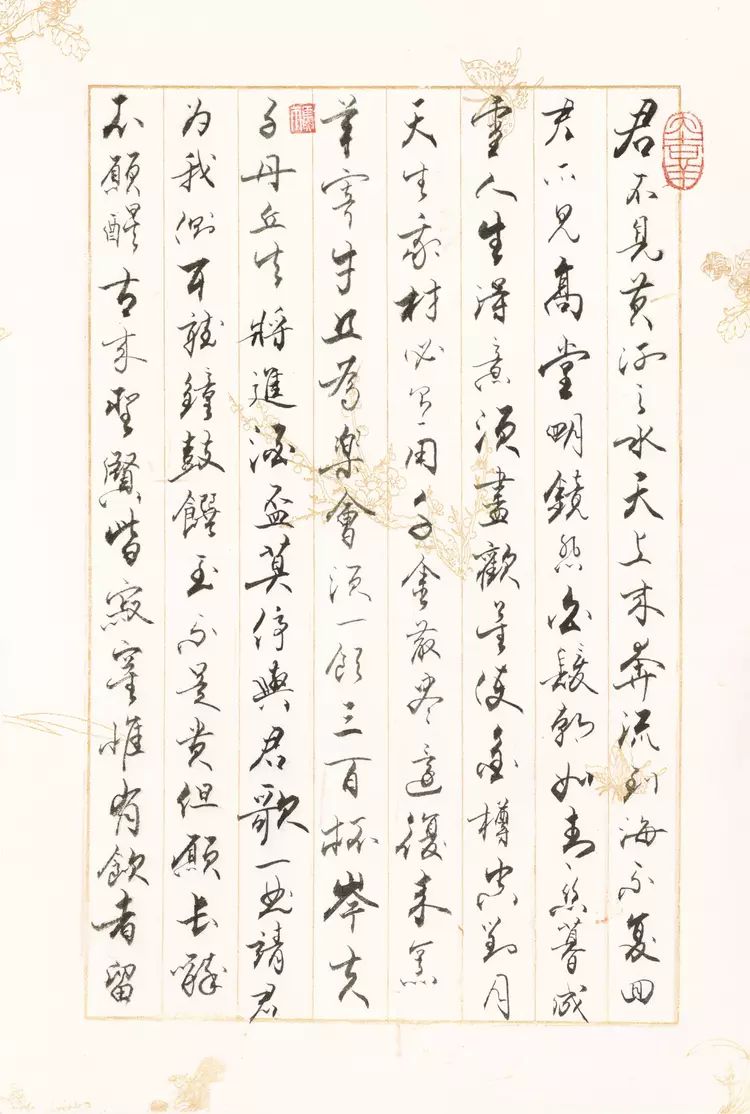 君不見黄河之水天上来奔流到海不复回
君不見高堂明鏡悲白髮朝如青絲暮成
雪人生得意須盡歡莫使金樽空對月
天生我材必有用千金散盡還復来烹
羊宰牛且為楽會須一飲三百杯岑夫
子丹丘生將進酒盃莫停與君歌一曲請君
为我側耳聽鐘鼓饌玉不足貴但願長醉
不願醒古来聖賢皆寂寞惟有飲者留